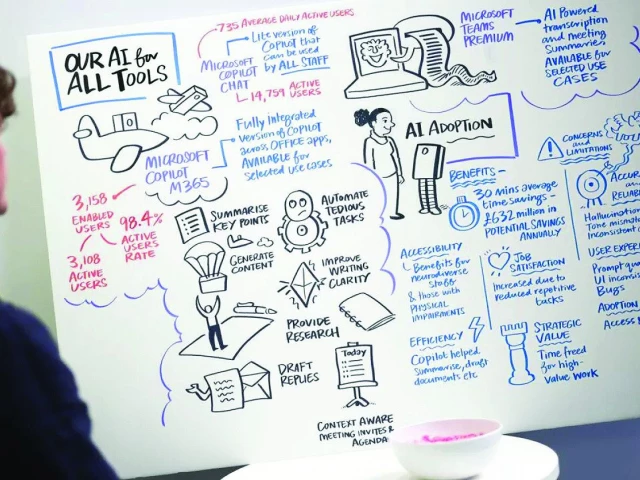 OUR AI for
ALL TOOLS
735 AVERAGE DAILY ACTIVE USERS
MICROSOFT
COPILOT
CHAT
Lite version of
Copilot that
can be used
by ALL STAFF
14,759 ACTIVE
USERS
MICROSOFT
TEAMS
PREMIUM
AI Powered
transcription
and meeting
Summaries
AVAILABLE for
SELECTED USE
CASES
MICROSOFT
COPILOT
M365
Fully integrated
version of Copilot
across OFFICE apps,
AVAILABLE for
selected use cases
3,158
ENABLED
USERS
98.4%
ACTIVE
USERS
RATE
3,108
ACTIVE
USERS
SUMMARISE
KEY POINTS
AUTOMATE
TEDIOUS
TASKS
GENERATE
CONTENT
IMPROVE
WRITING
CLARITY
PROVIDE
RESEARCH
DRAFT
REPLIES
Today
CONTEXT AWARE
MEETING INVITES &
AGENDA
AI ADOPTION
BENEFITS -
30 mins average
time savings -
£632 million in
POTENTIAL SAVINGS
ANNUALLY
ACCESSIBILITY
Benefits for
neurodiverse
staff
& those with
PHYSICAL
IMPAIRMENTS
JOB
SATISFACTION
Increased due to
reduced repetitive
tasks
EFFICIENCY
Copilot helped
summarise, draft
documents etc
STRATEGIC
VALUE
Time freed
for high-
value work
CONCERNS
and
LIMITATIONS
USER EXPERI
Bugs
ADOPTION